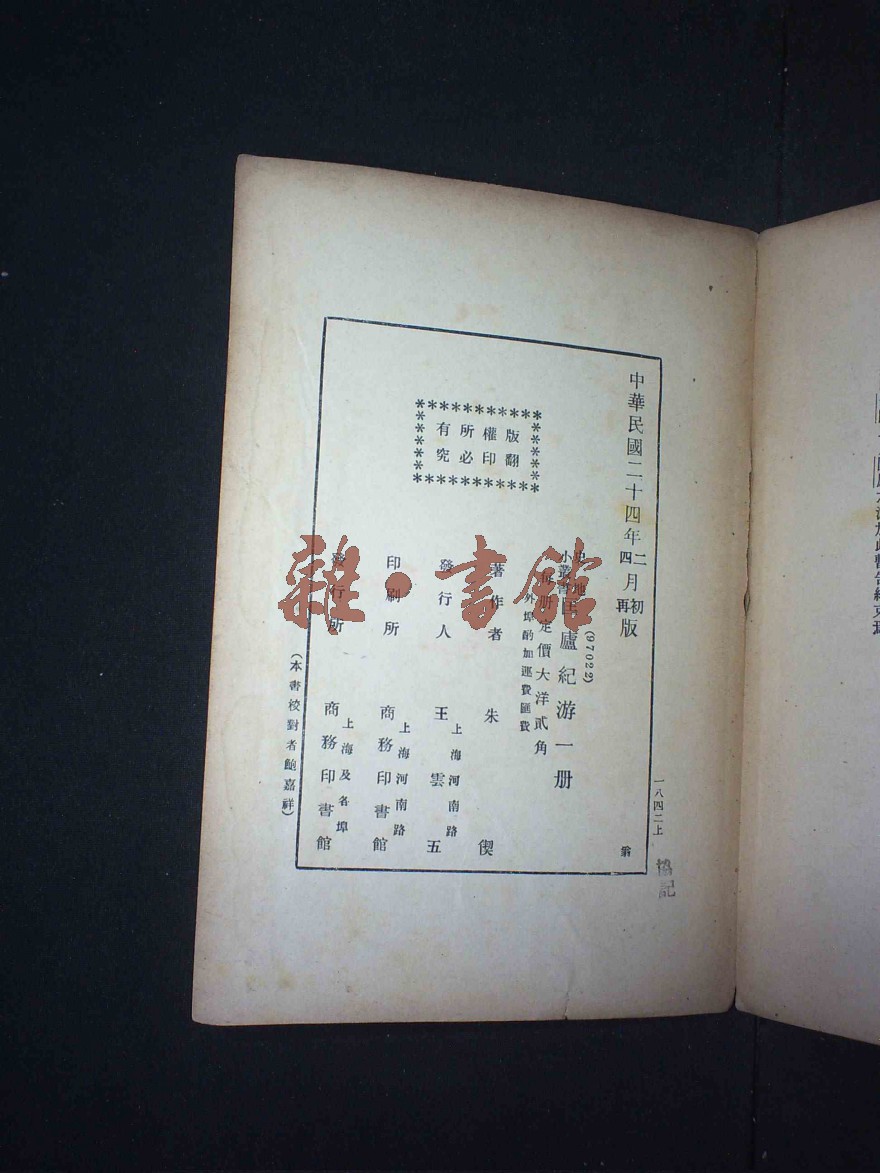 中華民國二十四年二月初版
四再
(97022)
史地小叢書 匡廬紀游一册
每册定價大洋貳角
外埠酌加運費匯費
版權所有
翻印必究
著作者 朱偰
發行人 王雲五
上海河南路
印刷所 商務印書館
上海河南路
發行所 商務印書館
上海及各埠
(本書校對者鮑嘉祥)
一八四二上
協記
雜·書館